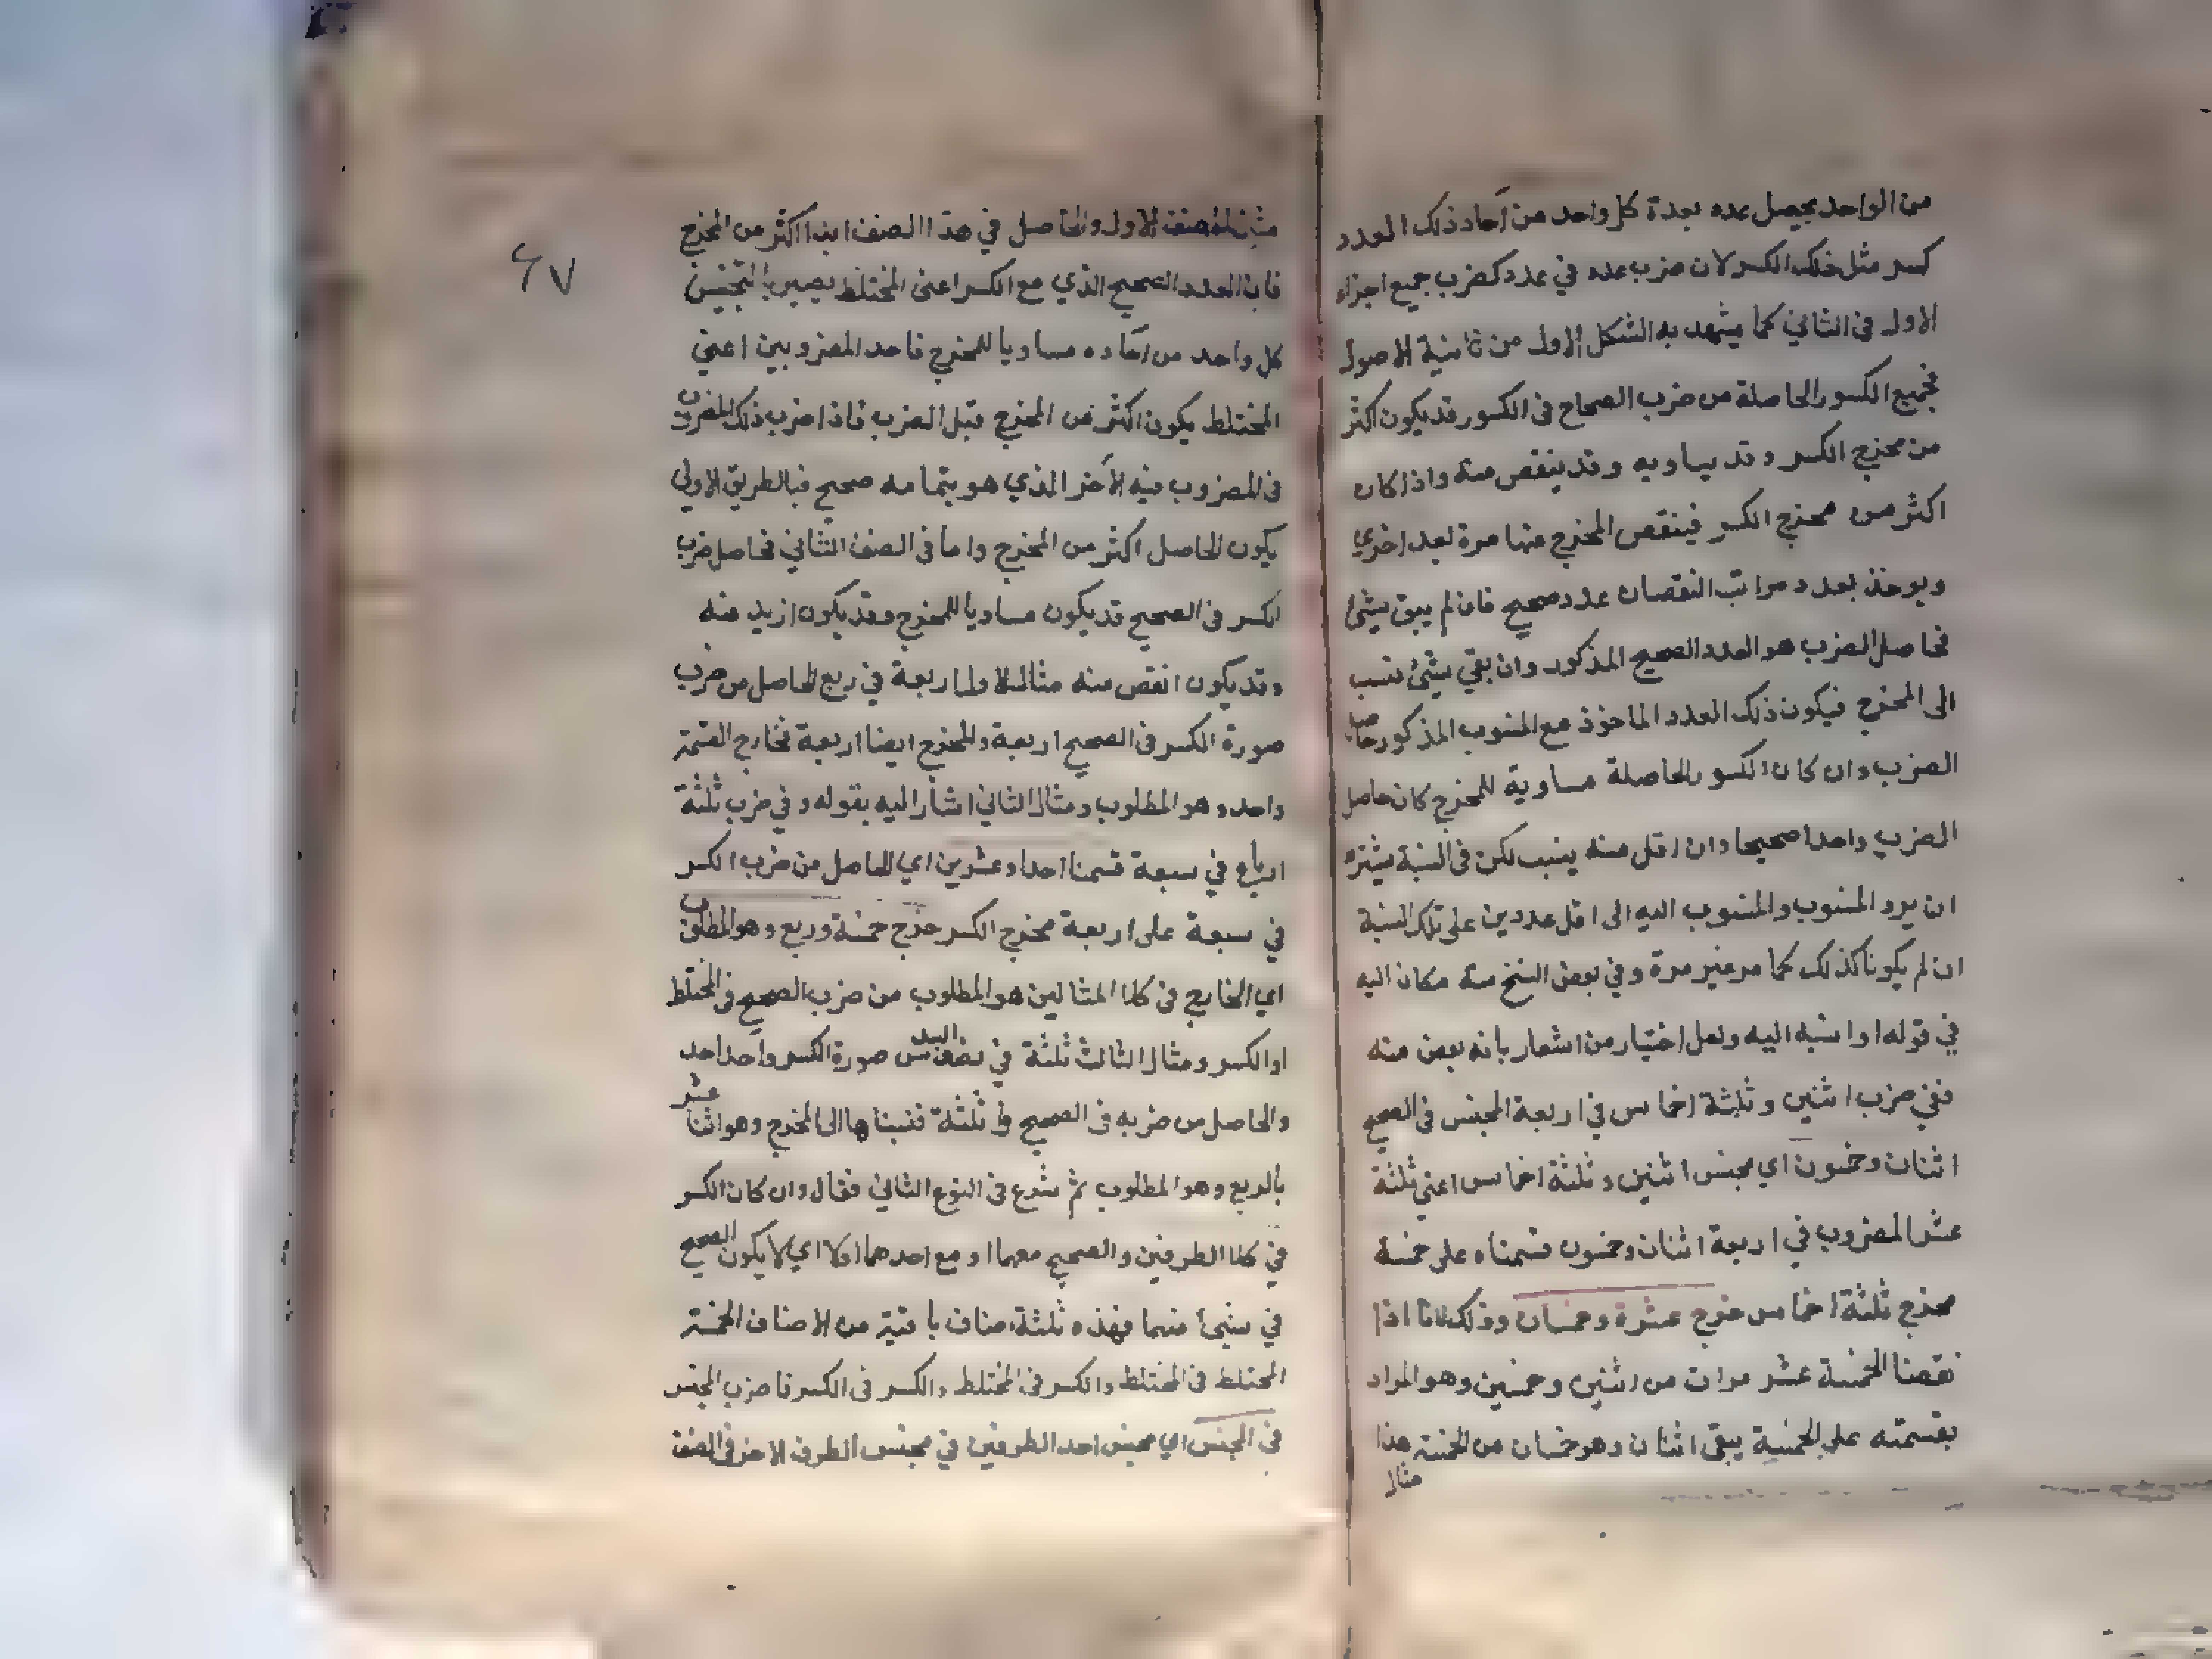 من الواحد يحصل بمده بعدة كل واحد من آحاد ذلك العدد
كسر مثل ذلك الكسر لان ضرب عدد في عدد كضرب جميع اجزاء
الاول فى الثاني كما يشهد به الشكل الاول من ثامنية الاصول
فجميع الكسور الحاصلة من ضرب الصحاح فى الكسور قد يكون اكثر
من مخرج الكسر وقد يساويه وقد ينقص منه واذا كان
اكثر من مخرج الكسر فينقص المخرج منها مرة بعد اخرى
ويوخذ بعدد مراتب النقصان عدد صحيح فان لم يبق شئ
فحاصل الضرب هو العدد الصحيح المذكور وان بقي شئ نسب
الى المخرج فيكون ذلك العدد الماخوذ مع المنسوب المذكور حاصل
الضرب وان كان الكسور الحاصلة مساوية للمخرج كان حاصل
الضرب واحدا صحيحا وان اقل منه ينسب لكن فى النسبة يشترط
ان يرد المنسوب والمنسوب اليه الى اقل عددين على تلك النسبة
ان لم يكونا كذلك كما مر غير مرة وفي بعض النسخ منه مكان اليه
في قوله او انسبه اليه ولعل اختيار من اشعار بانه بعض منه
ففي ضرب اثنين وثلثة اخماس في اربعة المجنس فى الصحيح
اثنان وخمسون اي مجنس اثنين وثلثة اخماس اعني ثلثة
عشر المضروب في اربعة اثنان وخمسون قسمناه على خمسة
مخرج ثلثة اخماس خرج عشرة وخمسان وذلك لانا اذا
نقصنا الخمسة عشر مرات من اثنين وخمسين وهو المراد
بقسمته على الخمسة يبقى اثنان وهو خمسان من الخمسة هذا
مثال
٦٧
مثال الصنف الاول والحاصل في هذا الصنف ابدا اكثر من المخرج
فان العدد الصحيح الذي مع الكسر اعنى المختلط يصير بالتجنيس
كل واحد من آحاده مساويا للمخرج فاحد المضروبين اعني
المختلط يكون اكثر من المخرج قبل الضرب فاذا ضرب ذلك المضروب
فى المضروب فيه الآخر الذي هو بتمامه صحيح فبالطريق الاولى
يكون الحاصل اكثر من المخرج واما فى الصنف الثاني فحاصل ضرب
الكسر فى الصحيح قد يكون مساويا للمخرج وقد يكون ازيد منه
وقد يكون انقص منه مثال الاول اربعة في ربع الحاصل من ضرب
صورة الكسر فى الصحيح اربعة والمخرج ايضا اربعة فخارج القسمة
واحد وهو المطلوب ومثال الثاني اشار اليه بقوله وفي ضرب ثلثة
ارباع في سبعة قسمنا احدا وعشرين اي الحاصل من ضرب الكسر
في سبعة على اربعة مخرج الكسر خرج خمسة وربع وهو المطلوب
اي الخارج فى كلا المثالين هو المطلوب من ضرب الصحيح فى المختلط
او الكسر ومثال الثالث ثلثة في نصف السدس صورة الكسر واحد احد
والحاصل من ضربه فى الصحيح ثلثة فنسبناها الى المخرج وهو اثنا عشر
بالربع وهو المطلوب ثم شرع فى النوع الثاني فقال وان كان الكسر
في كلا الطرفين والصحيح معهما او مع احدهما اولا اي لا يكون الصحيح
في شئ منهما فهذه ثلثة اصناف باقية من الاصناف الخمسة
المختلط فى المختلط والكسر فى المختلط والكسر فى الكسر فاضرب المجنس
فى المجنس اي مجنس احد الطرفين في مجنس الطرف الاخر فى الصنف